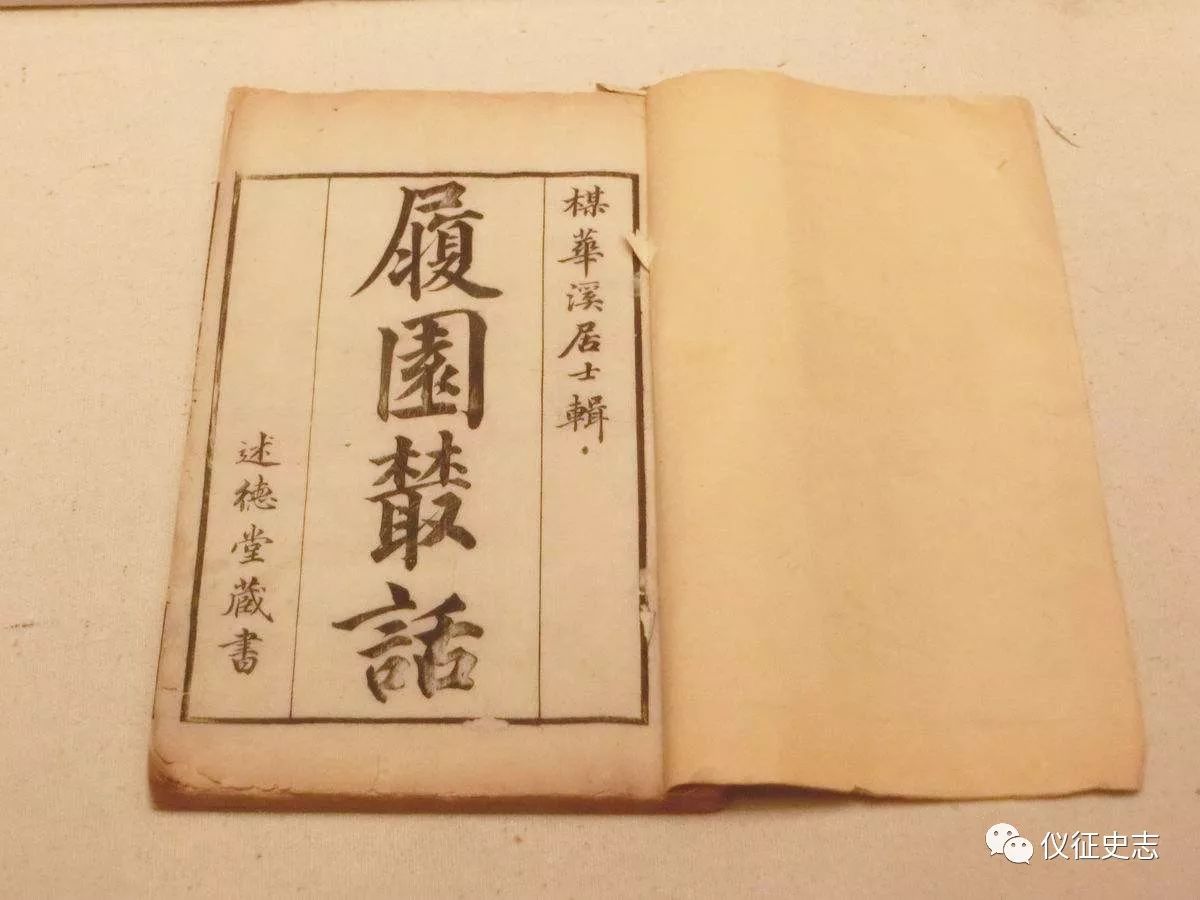 楳華溪居士輯
履園叢話
述德堂藏書
仪征史志